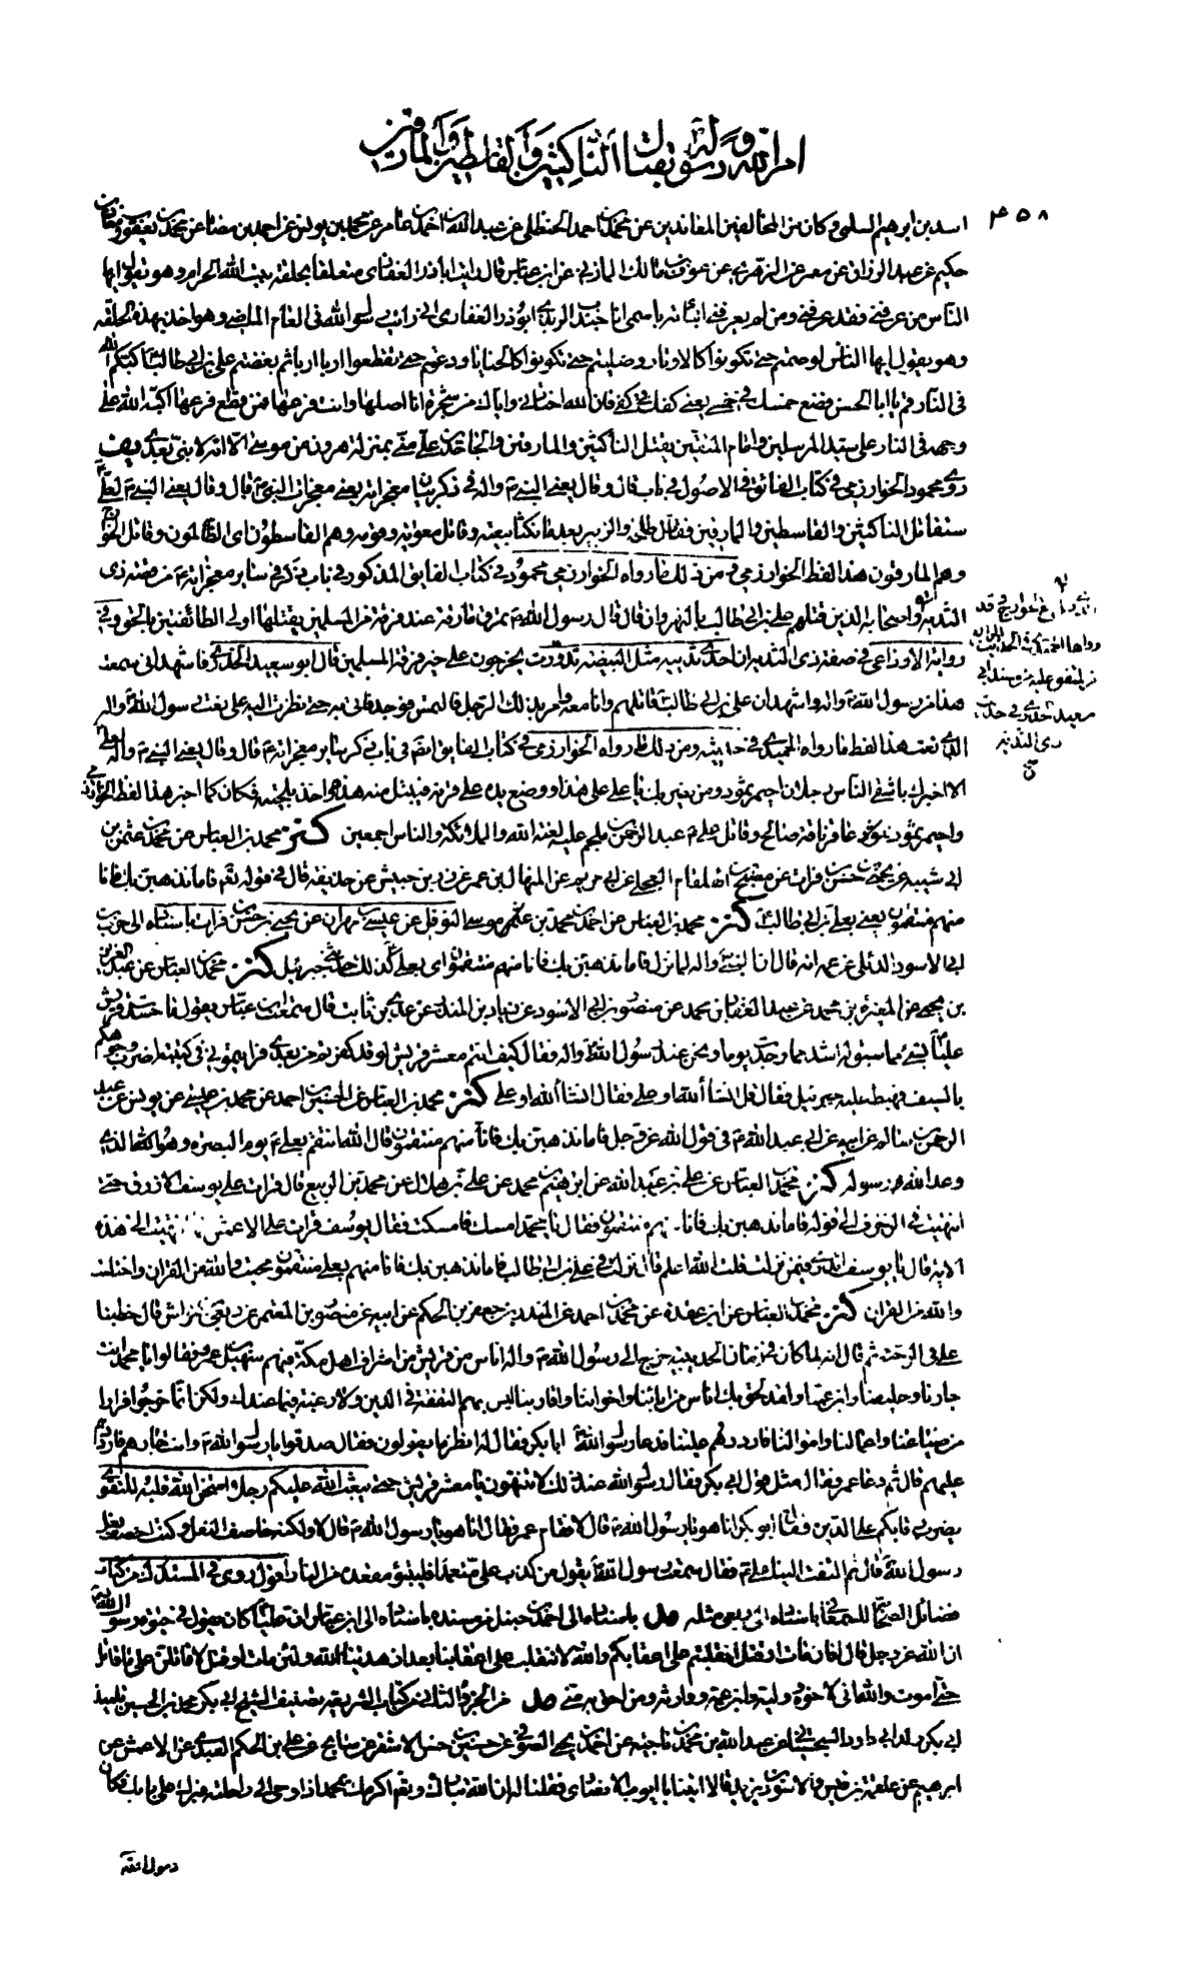 امر الله ورسوله بقتال الناكثين والقاسطين والمارقين
٤٥٨
اسد بن ابرهيم السلمي وكان من المخالفين المعاندين عن محمد بن احمد الحنظلي عن عبد الله بن احمد بن عامر عن محمد بن يونس عن احمد بن عن محمد بن يعقوب
حكيم عن عبد الرزاق عن معمر عن الزهري عن عوف بن مالك المازني عن ابن عباس قال رايت اباذر الغفاري متعلقا بحلقة بيت الله الحرام وهو يقول ايها
الناس من عرفني فقد عرفني ومن لم يعرفني انبأته باسمي انا جندب الربذي ابوذر الغفاري اني رايت رسول الله في العام الماضي وهو اخذ بهذه الحلقة
وهو يقول ايها الناس لو صمتم حتى تكونوا كالاوتار وصليتم حتى تكونوا كالحنايا ودعوتم حتى تقطعوا اربا اربا ثم بغضتم علي بن ابي طالب اكبكم الله
في النار قم يا ابا الحسن فضع خمسك في خمسي يعني كفك في كفي فان الله اختارني واياك من شجرة انا اصلها وانت فرعها فمن قطع فرعها اكبه الله على
وجهه في النار علي سيد المرسلين وامام المتقين يقتل الناكثين والمارقين والجاحدين علي مني بمنزلة هرون من موسى الا انه لا نبي بعدي
روى محمود الخوارزمي في كتاب الفائق في الاصول في باب قال وقال يعني النبي واله في ذكر بيان معجزاته يعني معجزات النبي قال وقال يعني النبي لعلي
ستقاتل الناكثين والقاسطين والمارقين فقاتل طلحة والزبير بعد ما نكثا بيعته وقاتل معوية وقومه وهم القاسطون اى الظالمون وقاتل الخوارج
وهم المارقون هذا لفظ الخوارزمي ومن ذلك ما رواه الخوارزمي محمود في كتاب الفايق المذكور في باب ذكر في ساير معجزاته من قصته ذى
الثديه واصحابه الذين قتلهم علي بن ابي طالب بالنهروان قال قال رسول الله تمرق مارقة عند فرقة من المسلمين يقتلها اولى الطائفتين بالحق وفي
رواية الاوزاعي في صفة ذى الثديه ان احدى ثدييه مثل البيضه تدردرت يخرجون على خير فرقة من المسلمين قال ابو سعيد الخدري فاشهد اني سمعت
هذا من رسول الله واله واشهد ان علي بن ابي طالب قاتلهم وانا معه وامر بذلك الرجل فالتمس فوجد فاتى به حتى نظرت اليه على نعت رسول الله واله
الذي نعت هذا لفظ ما رواه الحميدي في حديثه ومن ذلك ما رواه الخوارزمي في كتاب الفايق ايضا في باب ذكر ساير معجزاته قال وقال يعني النبي واله لعلي
الا اخبرك باشقى الناس رجلان احيمر ثمود ومن يضربك يا علي على هذا ووضع يده على قرنه فيبتل منه هذه واخذ بلحيته فكان كما اخبر هذا لفظ الخوارزمي
واحيمر ثمود هو عاقر ناقة صالح وقاتل علي عبد الرحمن بن ملجم عليه لعنة الله والملائكة والناس اجمعين كنز محمد بن العباس عن محمد بن عثمن بن
ابي شيبه عن يحيى بن حسن بن فرات عن مصبح بن الهلقام العجلي عن ابي مريم عن المنهال بن عمر عن زر بن حبيش عن حذيفه قال في قوله تعم فاما نذهبن بك فانا
منهم منتقمون يعني بعلي بن ابي طالب كنز محمد بن العباس عن احمد بن محمد بن موسى النوفلي عن عيسى بن مهران عن يحيى بن حسن بن فرات باسناده الى حرب بن
ابي الاسود الدئلي عن عمه انه قال ان النبي واله لما نزل فاما نذهبن بك فانا منهم منتقمون اى بعلي كذلك حدثني جبرئيل كنز محمد بن العباس عن عبد العزيز
بن يحيى عن المغيرة بن محمد عن عبد الغفار بن محمد عن منصور بن ابي الاسود عن زياد بن المنذر عن عدي بن ثابت قال سمعت ابن عباس يقول ما حسدت قريش
عليا بشيء مما سبق له اشد مما وجدت يوما ونحن عند رسول الله واله فقال كيف انتم معشر قريش لو قد كفرتم من بعدي فرايتموني في كتيبة اضرب وجوهكم
بالسيف فهبط عليه جبرئيل فقال قل انشاء الله او علي فقال انشا الله او علي كنز محمد بن العباس عن الحسين بن احمد عن محمد بن عيسى عن يونس عن عبد
الرحمن بن سالم عن ابيه عن ابي عبد الله في قول الله عز وجل فاما نذهبن بك فانا منهم منتقمون قال الله انتقم بعلي يوم البصرة وهو الذي
وعد الله رسوله كنز محمد بن العباس عن علي بن عبد الله عن ابرهيم بن محمد عن علي بن هلال عن محمد بن الربيع قال قرات على يوسف الازرق حتى
انتهيت في الزخرف الى قوله فاما نذهبن بك فانا منهم منتقمون فقال يا محمد امسك فامسكت فقال يوسف قرات على الاعمش فلما انتهيت الى هذه
الاية قال يا يوسف اتدري فيمن نزلت قلت الله اعلم قال نزلت في علي بن ابي طالب فاما نذهبن بك فانا منهم بعلي منتقمون محيت والله من القران واختلست
والله من القران كنز محمد بن العباس عن ابن عقده عن محمد بن احمد عن المنذر بن جيفر بن الحكم عن ابيه عن منصور بن المعتمر عن ربعي بن خراش قال خطبنا
علي في الرحبة ثم قال انه لما كان في زمان الحديبيه خرج الى رسول الله واله اناس من قريش من اشراف اهل مكة فيهم سهيل بن عمرو فقالوا يا محمد انت
جارنا وحليفنا وابن عمنا وقد لحق بك اناس من ابنائنا واخواننا واقاربنا ليس بهم التفقه في الدين ولا رغبة فيما عندك ولكن انما خرجوا فرارا
من ضياعنا واعمالنا واموالنا فارددهم علينا فدعا رسول الله ابا بكر فقال له انظر ما يقولون فقال صدقوا يا رسول الله وانت جارهم فارددهم
عليهم قال ثم دعا عمر فقال مثل قول ابي بكر فقال رسول الله عند ذلك لا تنتهون يا معشر قريش حتى يبعث الله عليكم رجلا امتحن الله قلبه للتقوى
يضرب رقابكم على الدين فقال ابو بكر انا هو يا رسول الله قال لا فقام عمر فقال انا هو يا رسول الله قال لا ولكنه خاصف النعل وكنت اخصف نعل
رسول الله قال ثم التفت الينا علي فقال سمعت رسول الله يقول من كذب علي متعمدا فليتبوء مقعده من النار اقول روى في المستدرك من كتاب
فضائل الصحابة للسمعاني باسناده الى ربعي مثله باسناده الى احمد بن حنبل من مسنده باسناده الى ابن عباس ان عليا كان يقول في حيوة رسول الله
ان الله عز وجل قال افان مات او قتل انقلبتم على اعقابكم والله لا ننقلب على اعقابنا بعد اذ هدينا الله ولئن مات او قتل لاقاتلن على ما قاتل
حتى اموت والله اني لاخوه وليه وابن عمه ووارثه ومن احق به مني من الجزء الثاني من كتاب الشريعة تصنيف الشيخ ابي بكر محمد بن الحسين تلميذ
ابي بكر بن ابي داود السجستاني عن عبد الله بن محمد بن ناجيه عن احمد بن يحيى الصوفي عن حسين بن حسن الاشقر عن علي بن الحكم العبدي عن الاعمش عن
ابرهيم عن علقمة بن قيس والاسود بن يزيد قالا اتينا ابا ايوب الانصاري فقلنا له ان الله تبارك وتعم اكرمك بمحمد اذ اوحى الى راحلته فبركت على بابك فكان
رسول الله